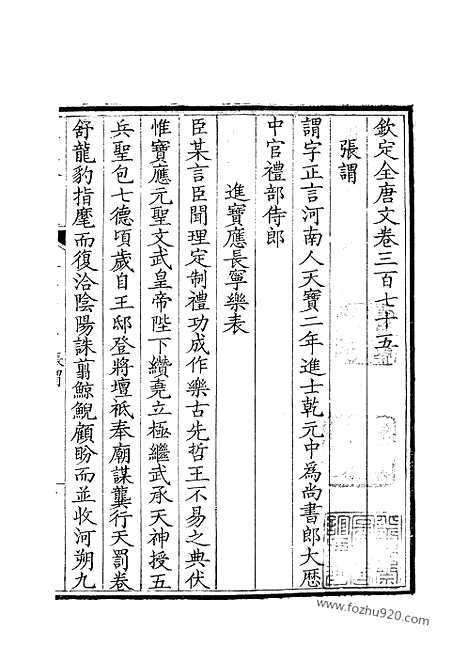 欽定全唐文卷三百七十五
張謂
謂字正言河南人天寶二年進士乾元中為尚書郎大厯
中官禮部侍郎
進寶應長寧樂表
臣某言臣聞理定制禮功成作樂古先哲王不易之典伏
惟寶應元聖文武皇帝陛下纘堯立極繼武承天神授五
兵聖包七德頃歲自王邸登將壇祗奉廟謀龔行天罰卷
舒龍豹指麾而復洽陰陽誅翦鯨鯢顧盼而並收河朔九
www.fozhu920.com